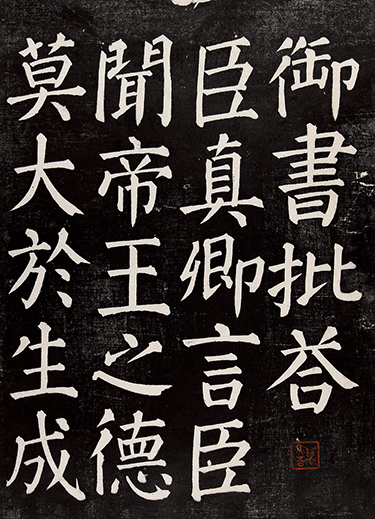 御書批荅
臣真卿言臣
聞帝王之德
莫大於生成